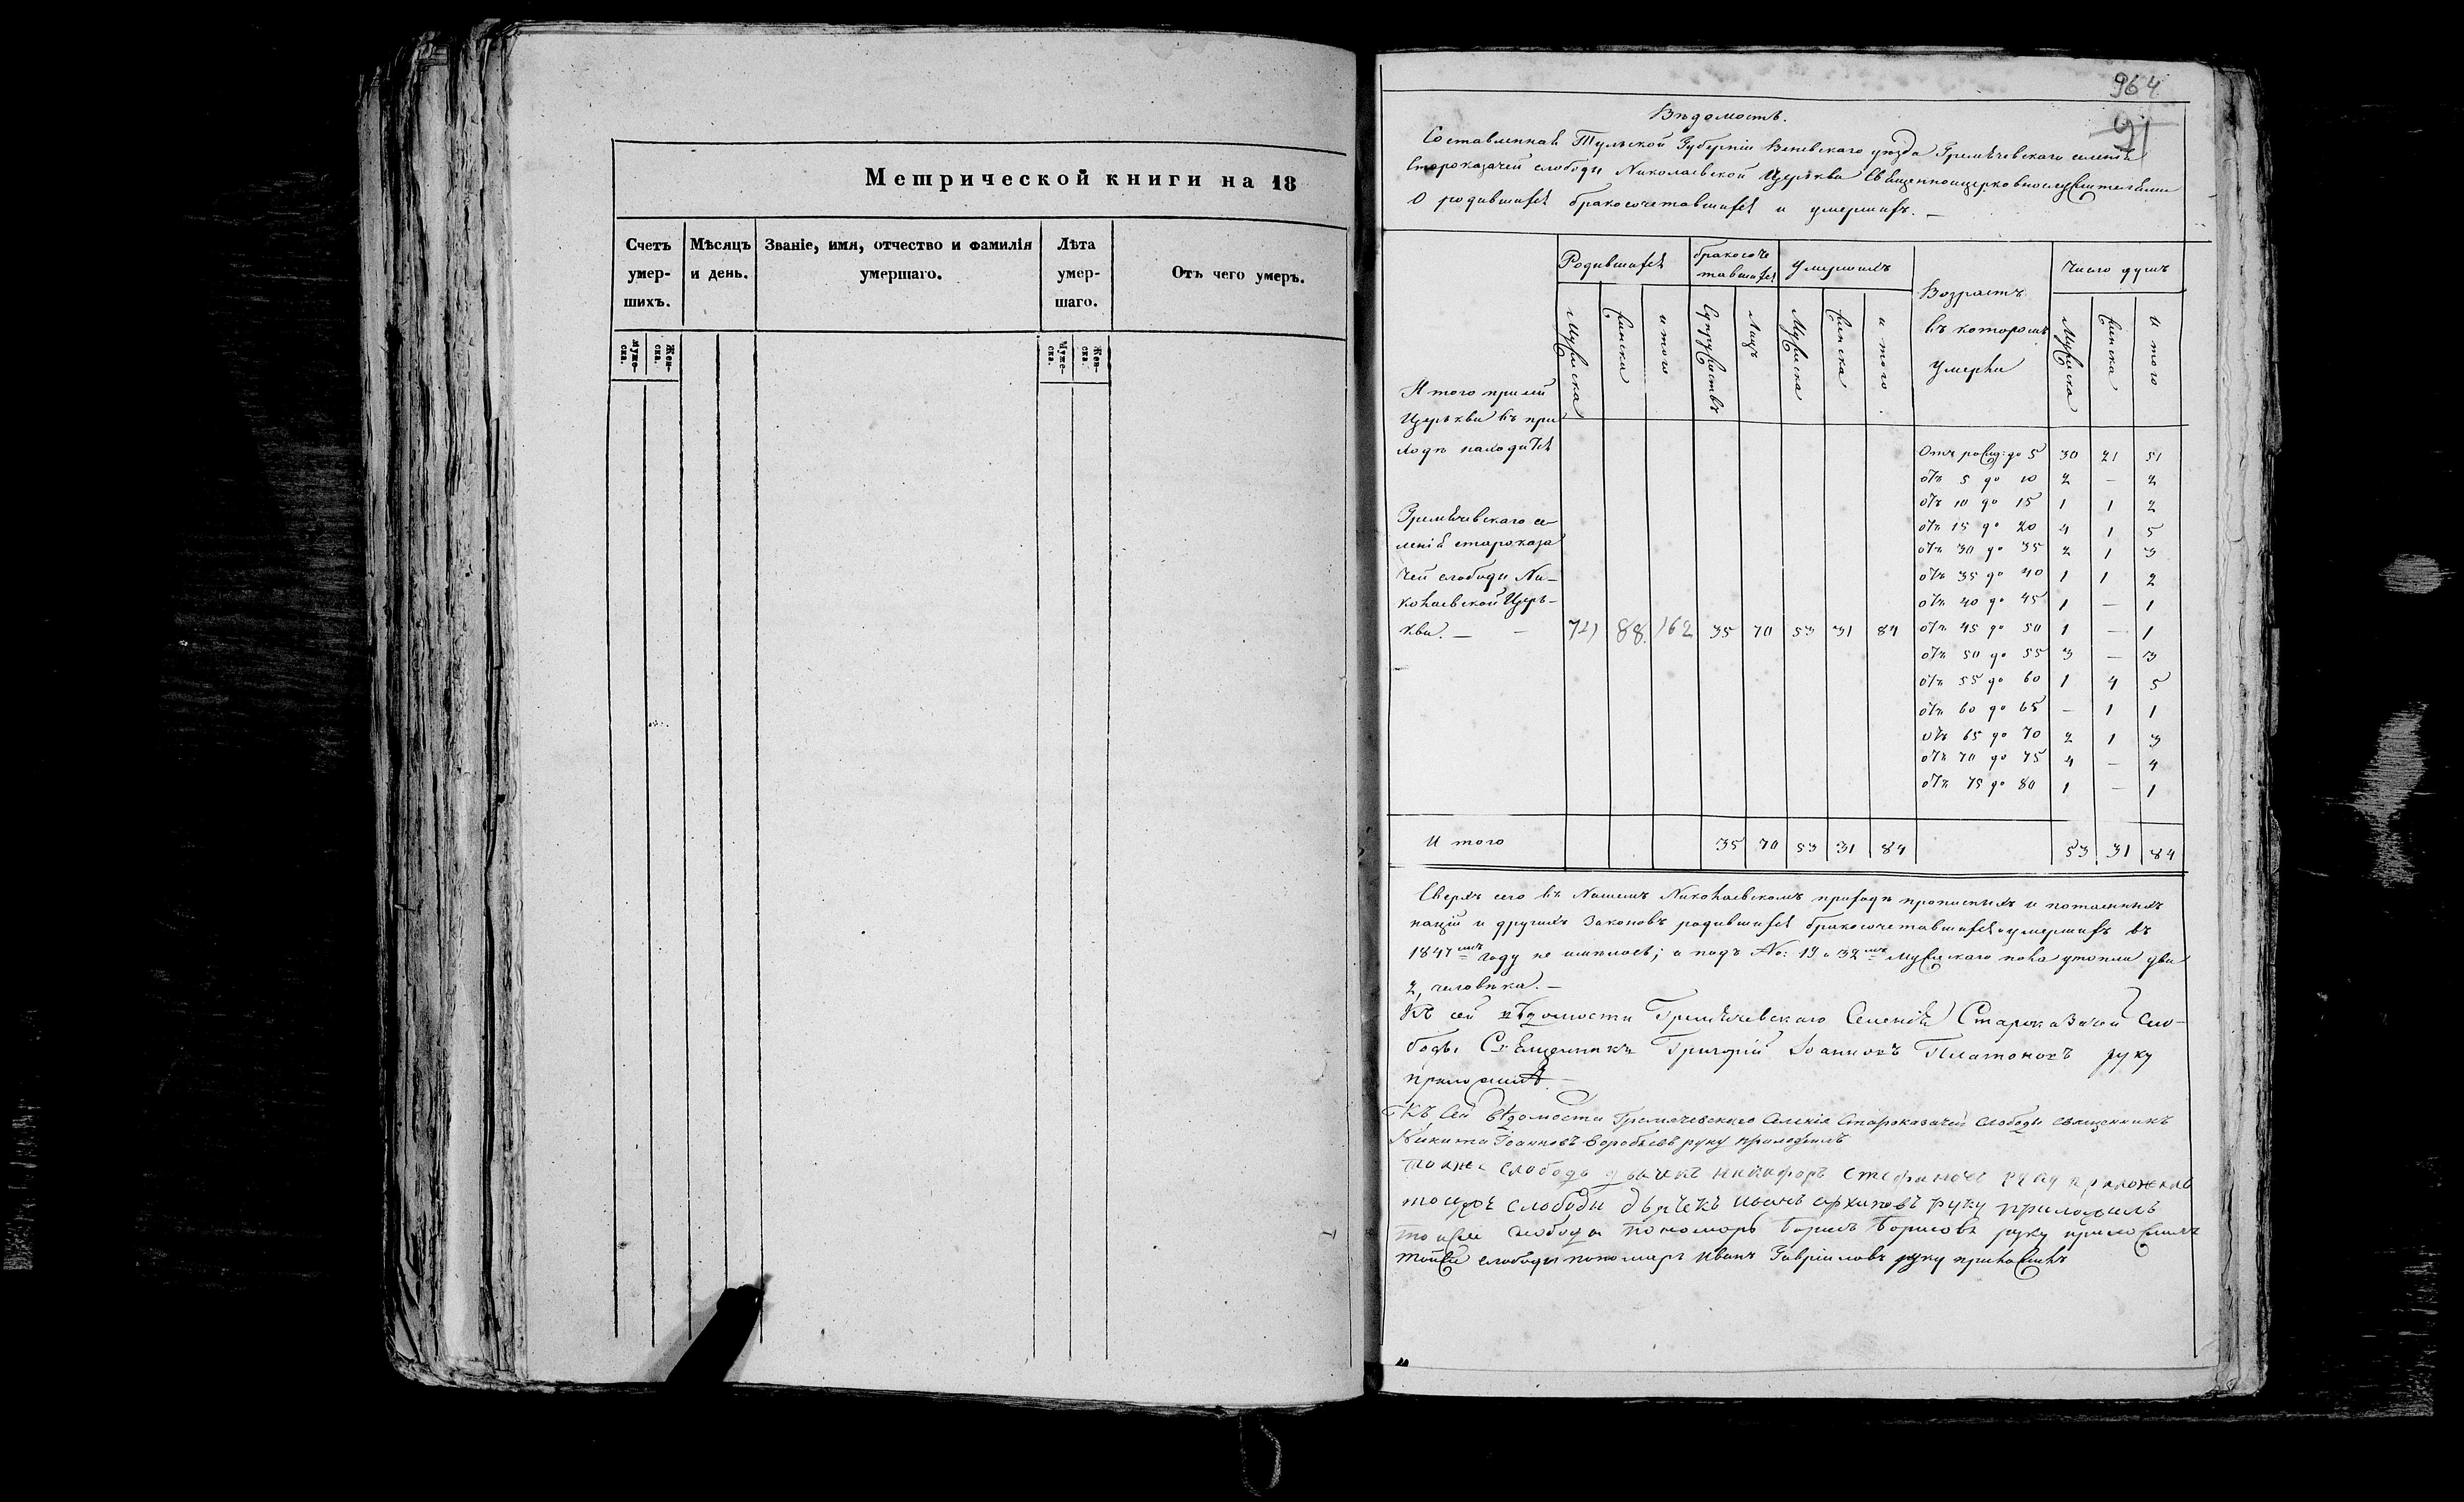 Метрической книги на 18
Счетъ умер-шихъ. Мѣсяцъ и день. Званіе, имя, отчество и фамилія умершаго. Лѣта умер-шаго. Отъ чего умеръ.
Муже-ска. Жен-ска. Муже-ска. Жен-ска.
964
91
Вѣдомость.
Составленная Тульской Губерніи Веневскаго уѣзда Гремячевскаго селенія
Староказачей слободы Николаевской Церькви Священноцерковнослужителями
О родившихся бракосочетавшихся и умершихъ. —
Родившихся бракосоче тавшихся умершихъ Возрастъ въ которомъ умерли Число душъ
Мужеска женска итого Супружествъ Лицъ Мужеска женска итого Мужеска женска итого
Итого при сей
Церькви въ при
ходѣ находится
Гремячевскаго се-
ленія староказа
чей слободы Ни-
колаевской Церь-
кви. — — 88. 162 35 70 53 31 84
Отъ рожд: до 5 30 21 51
отъ 5 до 10 2 — 2
отъ 10 до 15 1 1 2
отъ 15 до 20 4 1 5
отъ 30 до 35 2 1 3
отъ 35 до 40 1 1 2
отъ 40 до 45 1 — 1
отъ 45 до 50 1 — 1
отъ 50 до 55 3 — 3
отъ 55 до 60 1 4 5
отъ 60 до 65 — 1 1
отъ 65 до 70 2 1 3
отъ 70 до 75 4 — 4
отъ 75 до 80 1 — 1
Итого 35 70 53 31 84 53 31 84
Сверхъ сего въ Нашемъ Николаевскомъ приходѣ прописныхъ и потаенныхъ
націй и другихъ Законовъ родившихся бракосочетавшихся и умершихъ въ
1847мъ году не имѣлось; а подъ No: 19 и 32мъ мужскаго пола утопли два
2, человѣка. —
Къ сей вѣдомости Гремячевскаго Селенія Староказачей Сло-
боды Священникъ Григорій Іоанновъ Платоновъ руку
приложилъ. —
Къ Сей вѣдомости Гремячевскаго Селенія Староказачей Слободы священникъ
Никита Іоанновъ Воробьевъ руку приложилъ
тояже слободы дьячекъ никифоръ стефановъ руку приложилъ
тоиже слободы дьячекъ иванъ архиповъ руку приложилъ
тоиже слободы пономарь Борисъ Борисовъ руку приложилъ
тойже слободы пономарь Иванъ Гавріиловъ руку приложилъ